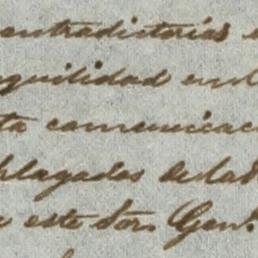 contradictorias
quilidad en l
ta comunicac
plagadas de la
este Sor. Gen.